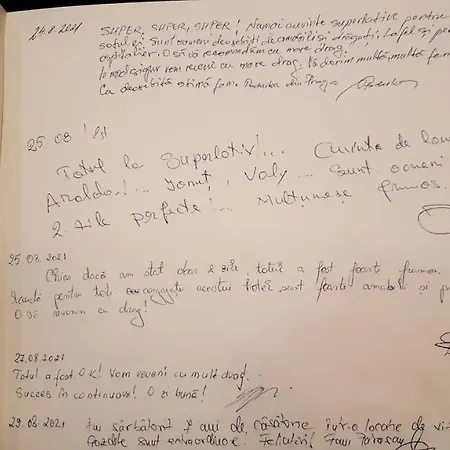 24.8.2021 SUPER, SUPER, SUPER! Numai cuvinte superlative pentru
sotul și. Sunt oameni deosebiți, de omăsili și drăguți. La fel și, pe
ospitalieri. O să vă recomandăm cu mare drag.
vom reveni cu mare drag. Vă dorim multă, multă
Cu deosebită stimă fam.
25 08 '21
Totul la superlativ!... Cuvinte de
Ionuț, Valy... sunt oameni
2 zile perfecte!... Mulțumesc frumos.
25 08. 2021
Chiar dacă am stat doar 2 zile, totul a fost foarte frumos.
pentru toți angajații acestui hotel, sunt foarte amabili și
O să revenim cu drag!
27.08.2021
Totul a fost O.K! Vom reveni cu mult drag.
Succes în continuare! O zi bună!
29.08.2021 Am sărbătorit 7 ani de căsătorie într-o locație de
Gazdele sunt extraordinare! Felicitări! Fam